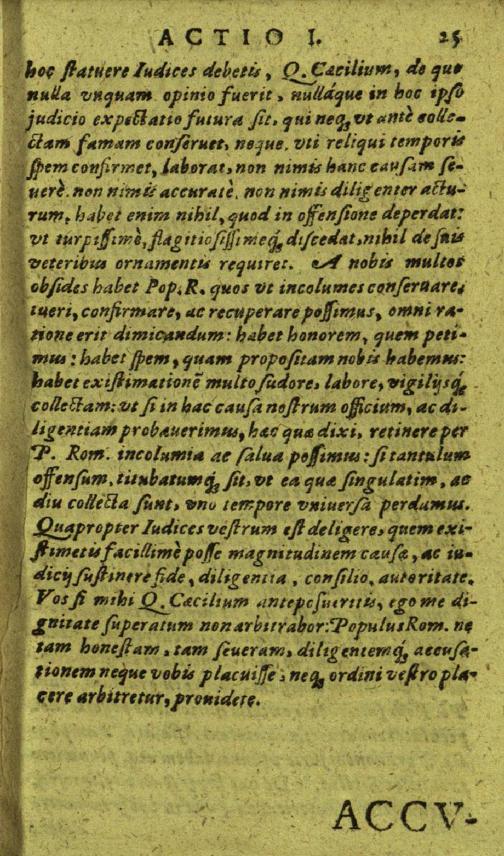 ACTIO I. 25
hoc statuere Iudices debetis, Q. Cæcilium, de quo
nulla vnquam opinio fuerit, nulláque in hoc ipso
judicio expectatio futura sit, qui neq; vt antè colle-
ctam famam conseruet, neque. vti reliqui temporis
spem confirmet, laborat, non nimis hanc causam se-
uerè. non nimis accuratè. non nimis diligenter actu-
rum. habet enim nihil, quod in offensione deperdat:
vt turpissimè, flagitiosissimeq́; discedat, nihil de suis
veteribus ornamentis requiret. A nobis multos
obsides habet Pop. R. quos vt incolumes conseruare,
tueri, confirmare, ac recuperare possimus, omni ra-
tione erit dimicandum: habet honorem, quem peti-
mus: habet spem, quam propositam nobis habemus:
habet existimationē multo sudore, labore, vigilijsq́;
collectam: vt si in hac causa nostrum officium, ac di-
ligentiam probauerimus, hæc quæ dixi, retinere per
P. Rom. incolumia ac salua possimus: si tantulum
offensum, titubatumq́; sit, vt ea quæ singulatim, ac
diu collecta sunt, vno tempore vniuersa perdamus.
Quapropter Iudices vestrum est deligere, quem exi-
stimetis facillimè posse magnitudinem causæ, ac iu-
dicij sustinere fide, diligentia, consilio, autoritate.
Vos si mihi Q. Cæcilium anteposueritis, ego me di-
gnitate superatum non arbitrabor: Populus Rom. ne
tam honestam, tam seueram, diligentemq́; accusa-
tionem neque vobis placuisse, neq; ordini vestro pla-
cere arbitretur, prouidete.
ACCV-